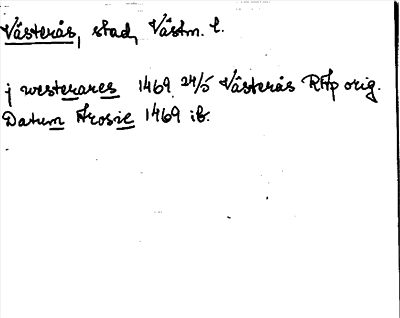 Västerås, stad, Västm. l.
j westerares 1469 24/5 Västerås RAp orig.
Datum Arosie 1469 ib.